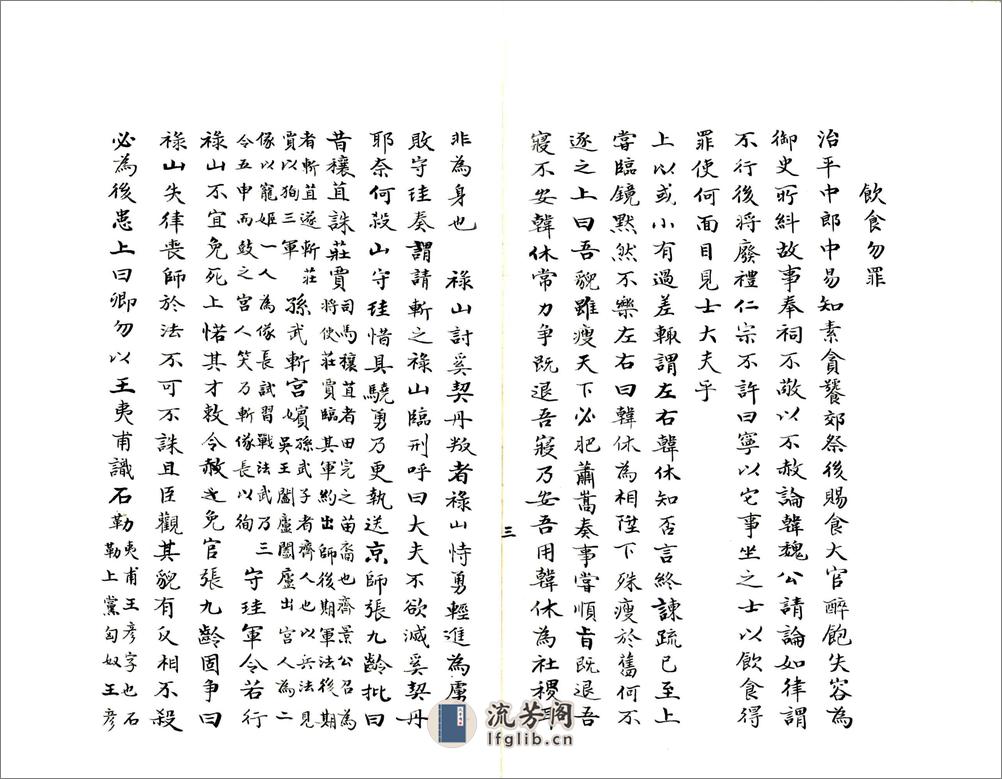 飲食勿罪
治平中郎中易知素貪饕郊祭後賜食大官醉飽失容為
御史所糾故事奉祠不敬以不赦論韓魏公請論如律謂
不行後將廢禮仁宗不許曰寧以它事坐之士以飲食得
罪使何面目見士大夫乎
上以或小有過差輒謂左右韓休知否言終諫疏已至上
嘗臨鏡默然不樂左右曰韓休為相陛下殊瘦於舊何不
逐之上曰吾貌雖瘦天下必肥蕭嵩奏事嘗順旨既退吾
寢不安韓休常力爭既退吾寢乃安吾用韓休為社稷耳
三
非為身也 祿山討奚契丹叛者祿山恃勇輕進為虜
敗守珪奏謂請斬之祿山臨刑呼曰大夫不欲滅奚契丹
耶奈何殺山守珪惜其驍勇乃更執送京師張九齡批曰
昔穰苴誅莊賈 司馬穰苴者田完之苗裔也齊景公召為將使莊賈臨其軍約出師後期軍法後期
者斬苴遂斬莊賈以狥三軍 孫武斬宮嬪 孫武子者齊人也以兵法見吳王闔廬闔廬出宮人為二
隊以寵姬一人為隊長試習戰法武乃三令五申而鼓之宮人笑乃斬隊長以徇 守珪軍令若行
祿山不宜免死上惜其才敕令赦之免官張九齡固爭曰
祿山失律喪師於法不可不誅且臣觀其貌有反相不殺
必為後患上曰卿勿以王夷甫識石勒 夷甫王彥字也石勒上黨匈奴王彥
流芳阁
lfglib.cn